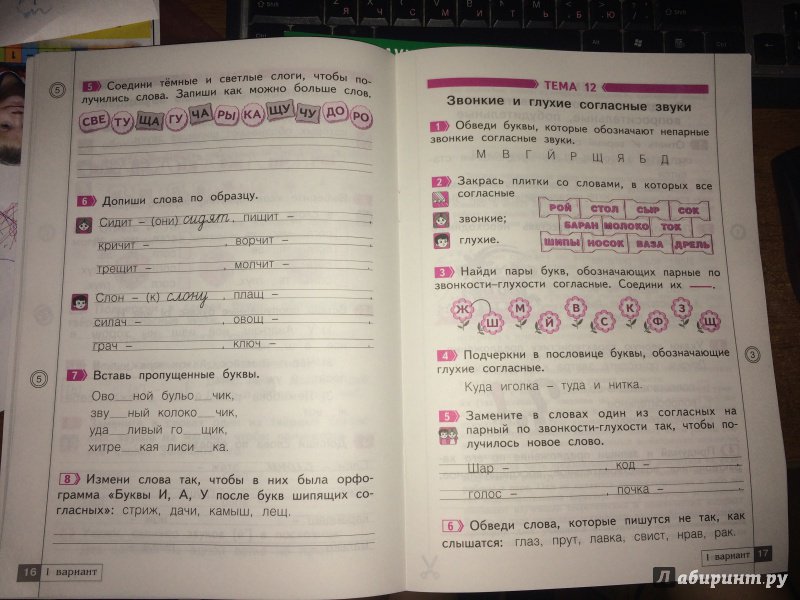 5 Соедини тёмные и светлые слоги, чтобы по-
лучились слова. Запиши как можно больше слов.
СВЕ ТУ ЩА ГУ ЧА РЫ КА ЩУ ЧУ ДО РО
6 Допиши слова по образцу.
Сидит – (они) сидят, пищит – .
кричит – , ворчит – .
трещит – , молчит – .
Слон – (к) слону, плащ – .
силач – , овощ – .
грач – , ключ – .
5
7 Вставь пропущенные буквы.
Ово__ной бульо__чик,
зву__ный колоко__чик,
уда__ливый го__щик,
хитре__кая лиси__ка.
8 Измени слова так, чтобы в них была орфо-
грамма «Буквы И, А, У после букв шипящих со-
гласных»: стриж, дачи, камыш, лещ.
16 I вариант
5
ТЕМА 12
Звонкие и глухие согласные звуки
1 Обведи буквы, которые обозначают непарные
звонкие согласные звуки.
М В Г Й Р Щ Я Б Д
2 Закрась плитки со словами, в которых все
согласные
звонкие;
глухие.
РОЙ СТОЛ СЫР СОК
БАРАН МОЛОКО ТОК
ШИПЫ НОСОК ВАЗА ДРЕЛЬ
3 Найди пары букв, обозначающих парные по
звонкости-глухости согласные. Соедини их ___.
Ж Ш М Й В С К Ф З Щ
4 Подчеркни в пословице буквы, обозначающие
глухие согласные.
3
Куда иголка – туда и нитка.
5 Замените в словах один из согласных на
парный по звонкости-глухости так, чтобы по-
лучилось новое слово.
Шар – , код – .
голос – , почка – .
6 Обведи слова, которые пишутся не так, как
слышатся: глаз, прут, лавка, свист, нрав, рак.
I вариант 17
Лабиринт.ру